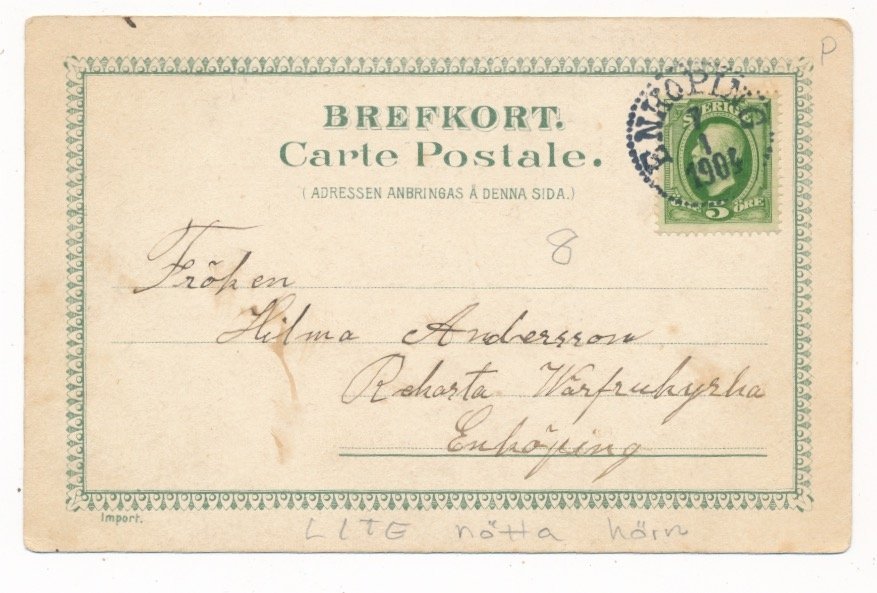 P
BREFKORT.
Carte Postale.
(ADRESSEN ANBRINGAS Å DENNA SIDA.)
ENKÖPING
7
1
1904
SVERIGE
5 ÖRE
8
Fröken
Hilma Andersson
Rekarta Wårfrukyrka
Enköping
Import.
LITE nötta hörn